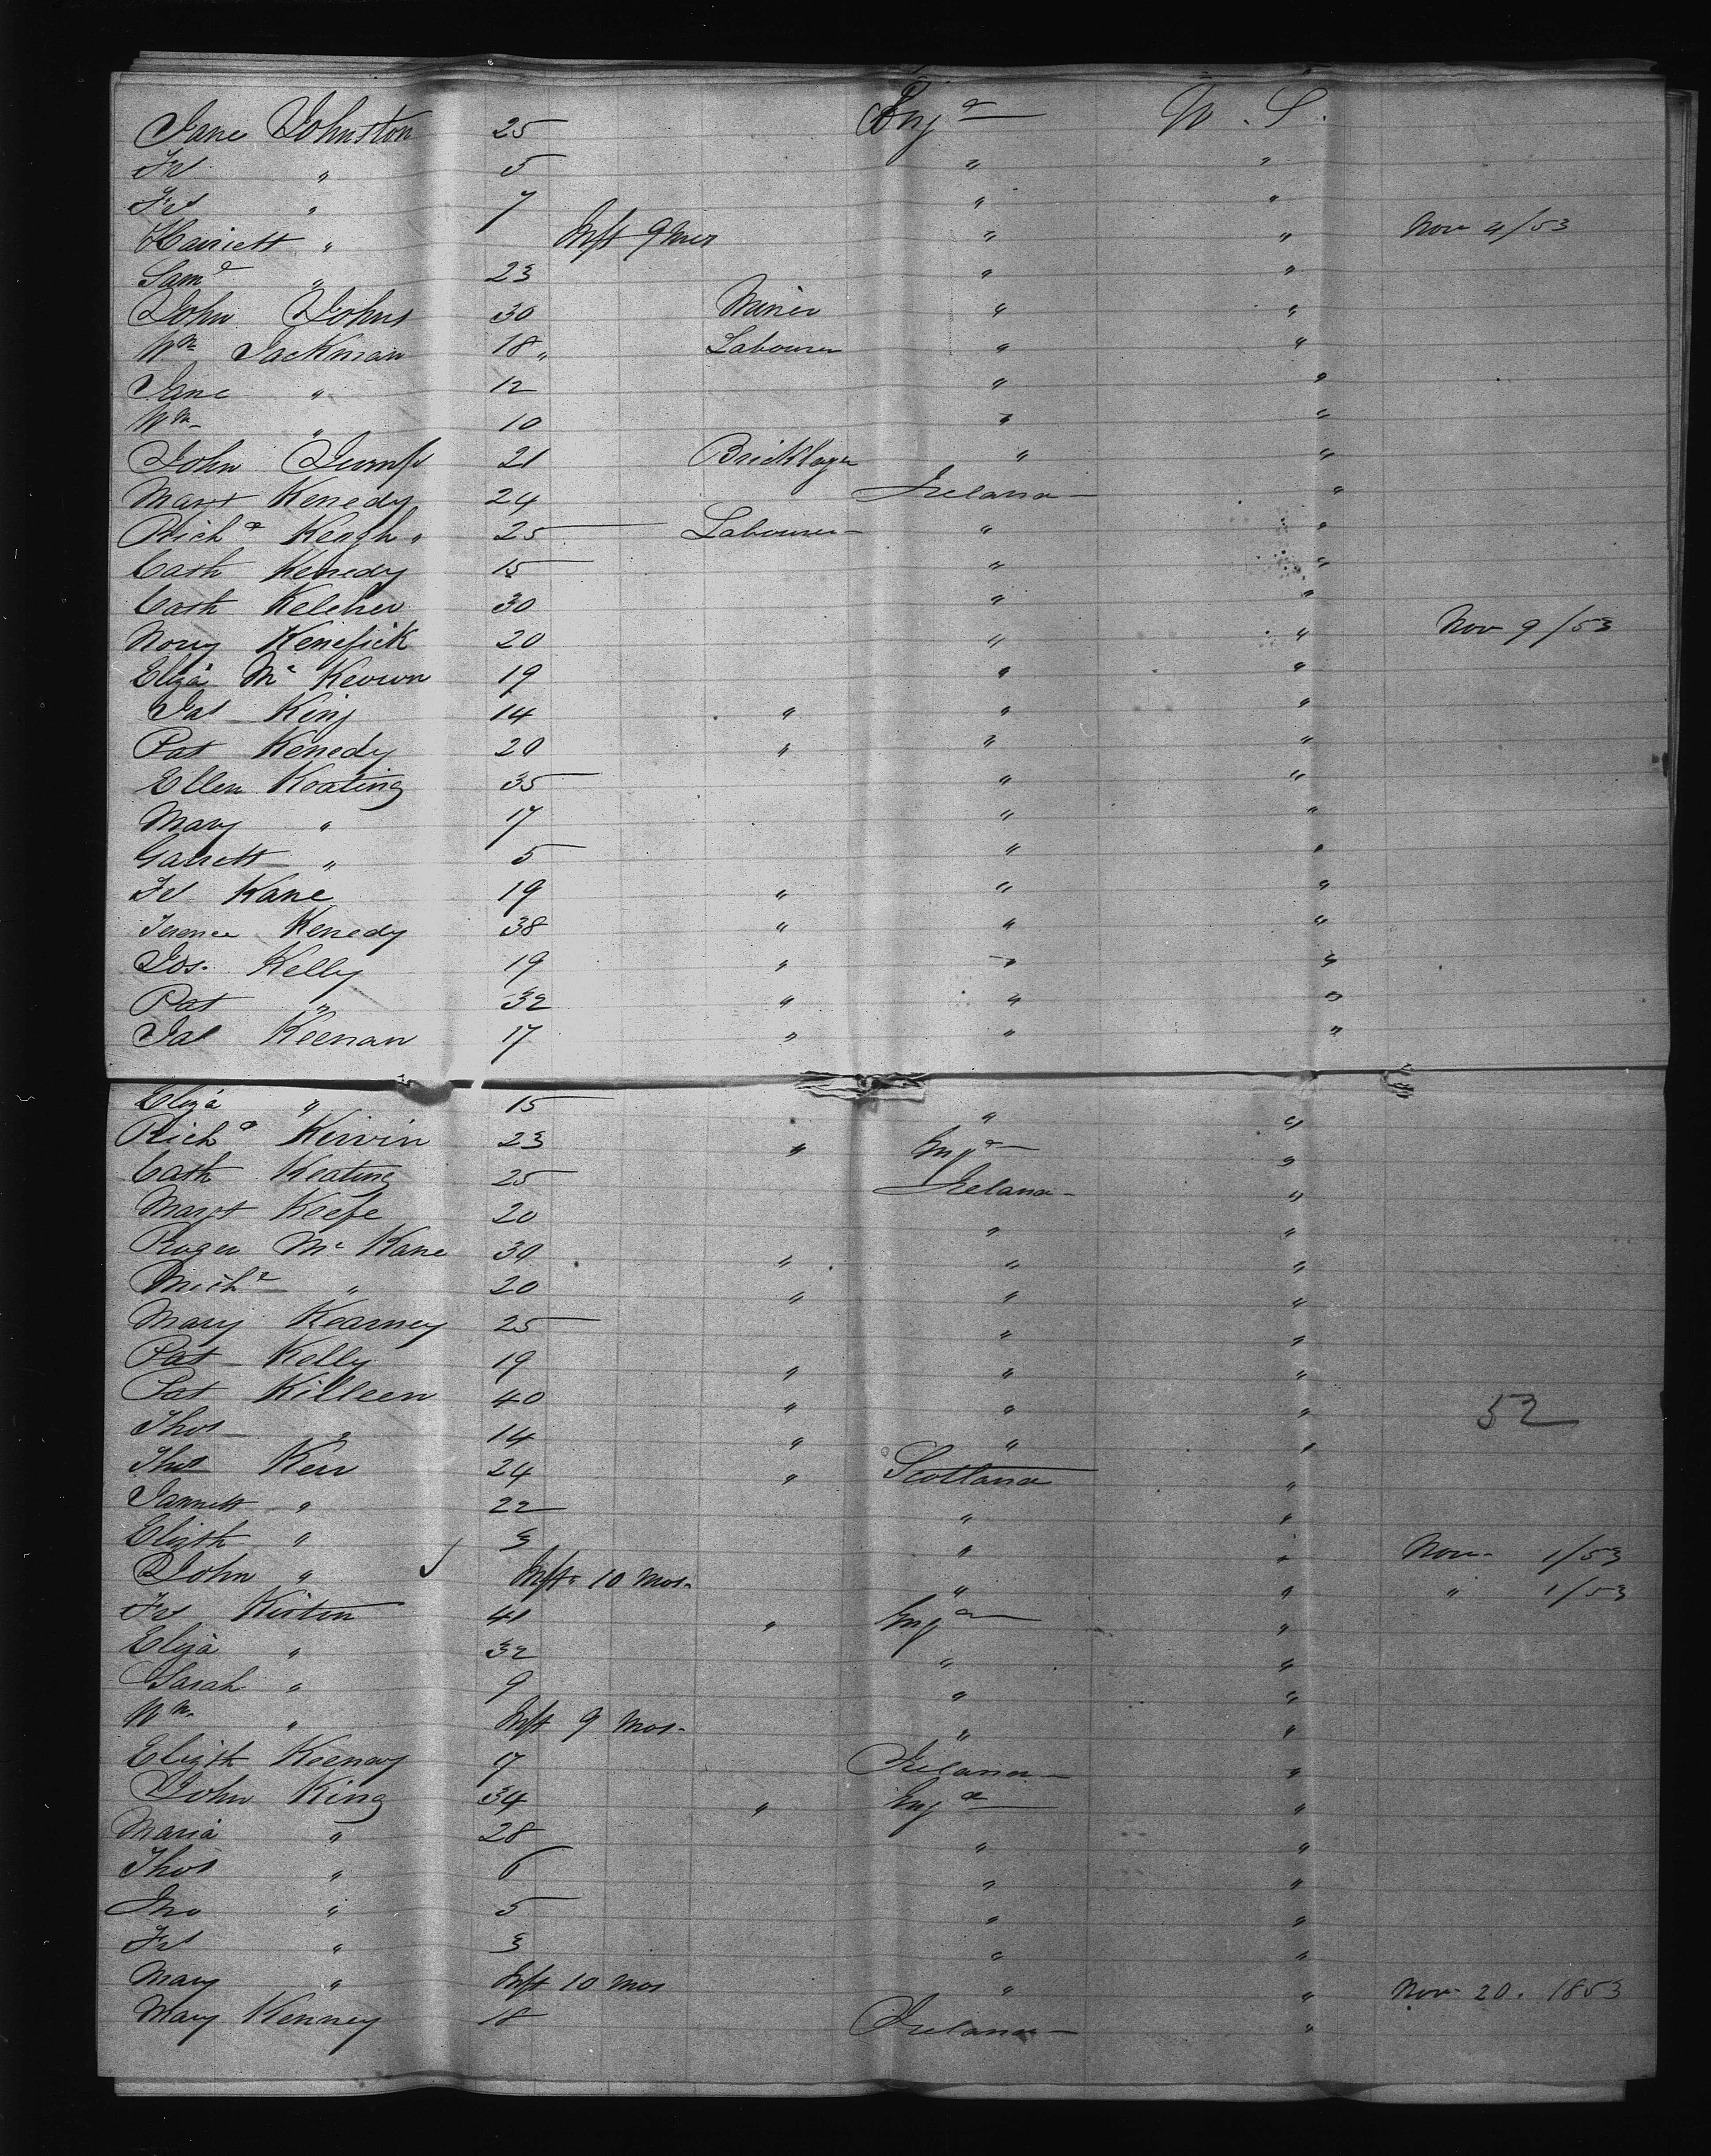 Jane Johnston 25 Engd U. S.
Frs " 5 " "
Frs " 7 " "
Harriett " Inft 9 mos " " Nov 4/53
Saml " 23 " "
John Johns 30 Miner " "
Wm Jackman 18 " Labourer " "
Jane " 12 " "
Wm " 10 " "
John Jump 21 Bricklayer " "
Margt Kenedy 24 Ireland "
Richd Keogh " 25 Labourer " "
Cath Kenedy 15 " "
Cath Keleher 30 " "
Nory Kenefick 20 " " Nov 9/53
Eliza Mc Keown 19 " "
Jas King 14 " " "
Pat Kenedy 20 " " "
Ellen Keating 35 " "
Mary " 17 " "
Garrett " 5 " "
Frs Kane 19 " " "
Terence Kenedy 38 " " "
Jos. Kelly 19 " " "
Pat " 32 " " "
Jas Keenan 17 " " "
Eliza " 15 " "
Richd Kirvin 23 " Engd "
Cath Keating 25 Ireland "
Margt Keefe 20 " "
Roger Mc Kane 30 " " "
Michl " 20 " " "
Mary Kearney 25 " "
Pat Kelly 19 " " "
Pat Killeen 40 " " " 52
Thos " 14 " " "
Thos Kerr 24 " Scotland "
Jannett " 22 " "
Elizth " 3 " " Nov 1/53
John " Inft 10 mos " " " 1/53
Frs Kirton 41 " Engd "
Eliza " 32 " "
Sarah " 9 " "
Wm " Inft 9 mos " "
Elizth Keenay 17 Ireland "
John King 34 " Engd "
Maria " 28 " "
Thos " 6 " "
Jno " 5 " "
Frs " 3 " "
Mary " Inft 10 mos " " Nov 20. 1853
Mary Kenney 18 Ireland "